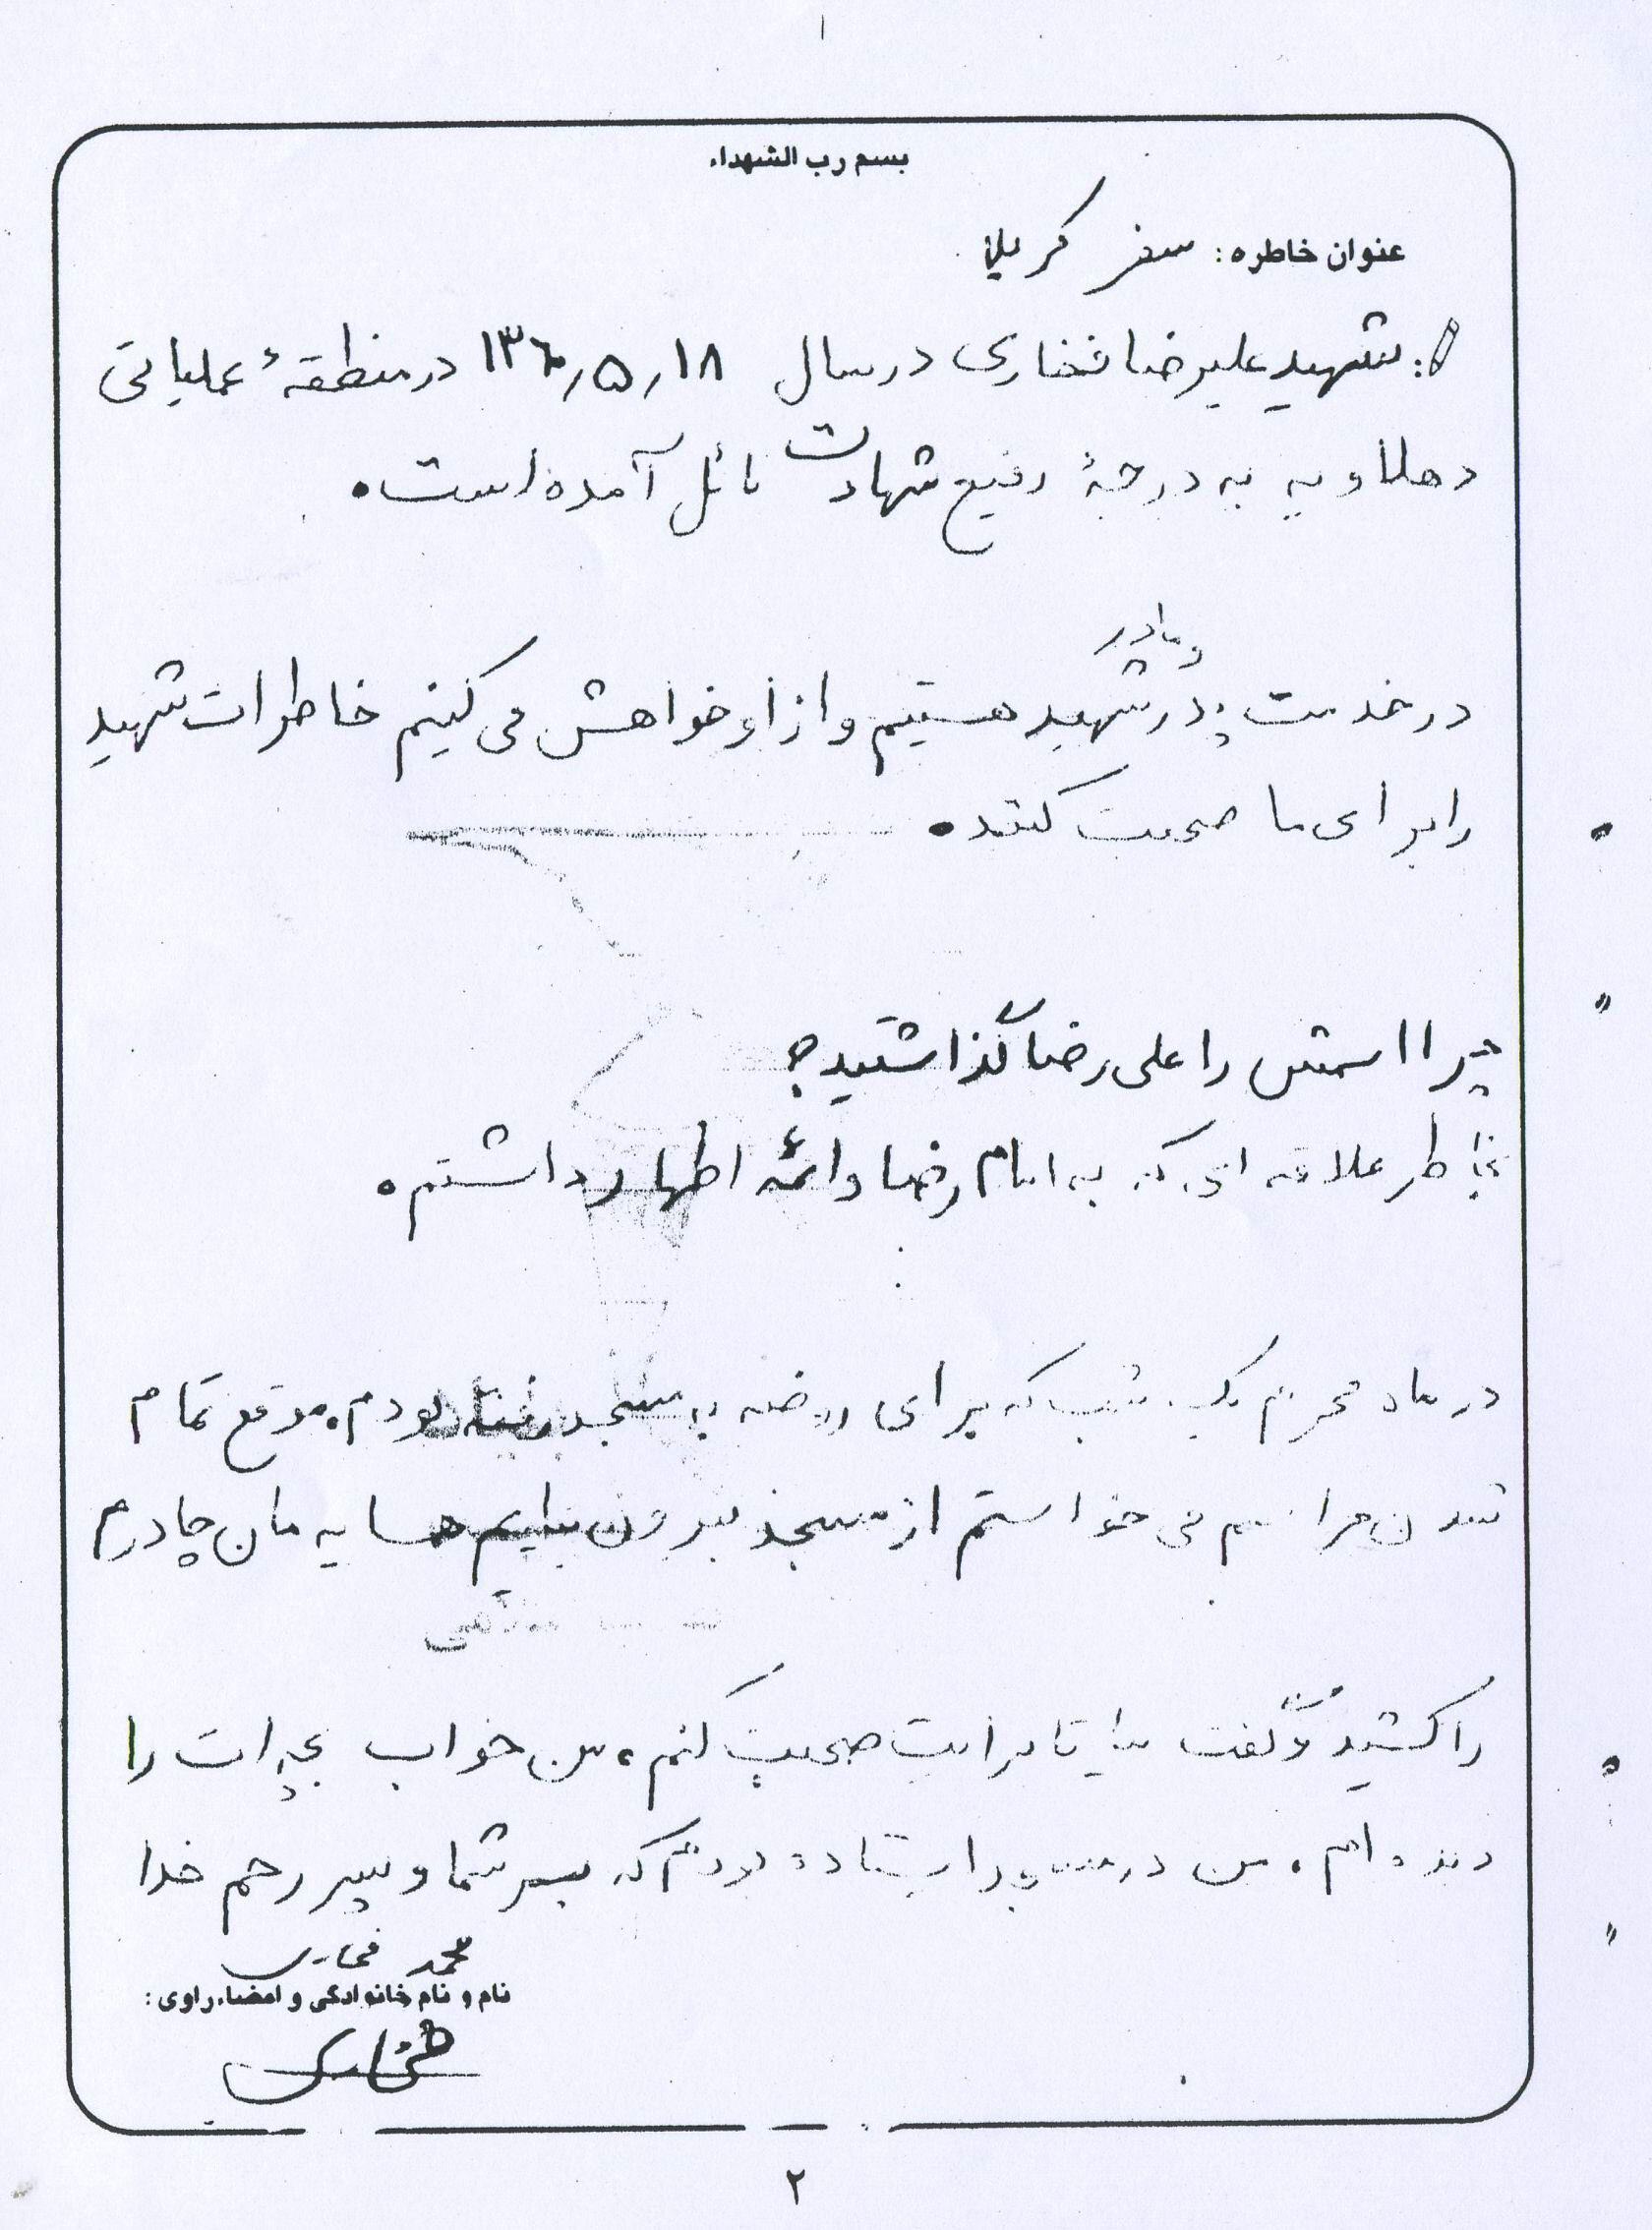 ۱
بسم رب الشهداء
عنوان خاطره: سفر کربلا
: شهید علیرضا فخاری در سال ۱۳۶۰٫۵٫۱۸ در منطقهٔ عملیاتی
دهلاویه به درجهٔ رفیع شهادت نائل آمده است.
و مادر
در خدمت پدر شهید هستیم و از او خواهش می کنیم خاطرات شهید
را برای ما صحبت کنند.
چرا اسمش را علی رضا گذاشتید؟
بخاطر علاقه ای که به امام رضا و ائمه اطهار داشتم.
در ماه محرم یک شب که برای روضه به مسجد رفته بودم. موقع تمام
شدن مراسم می خواستم از مسجد بیرون بیایم همسایه مان چادرم
را کشید و گفت بیا تا برایت صحبت کنم، من خواب بچه ات را
دیده ام، من در مسجد ایستاده بودم که پسر شما و پسر رحم خدا
محمد فخاری
نام و نام خانوادگی و امضاء راوی:
فخاری
۲